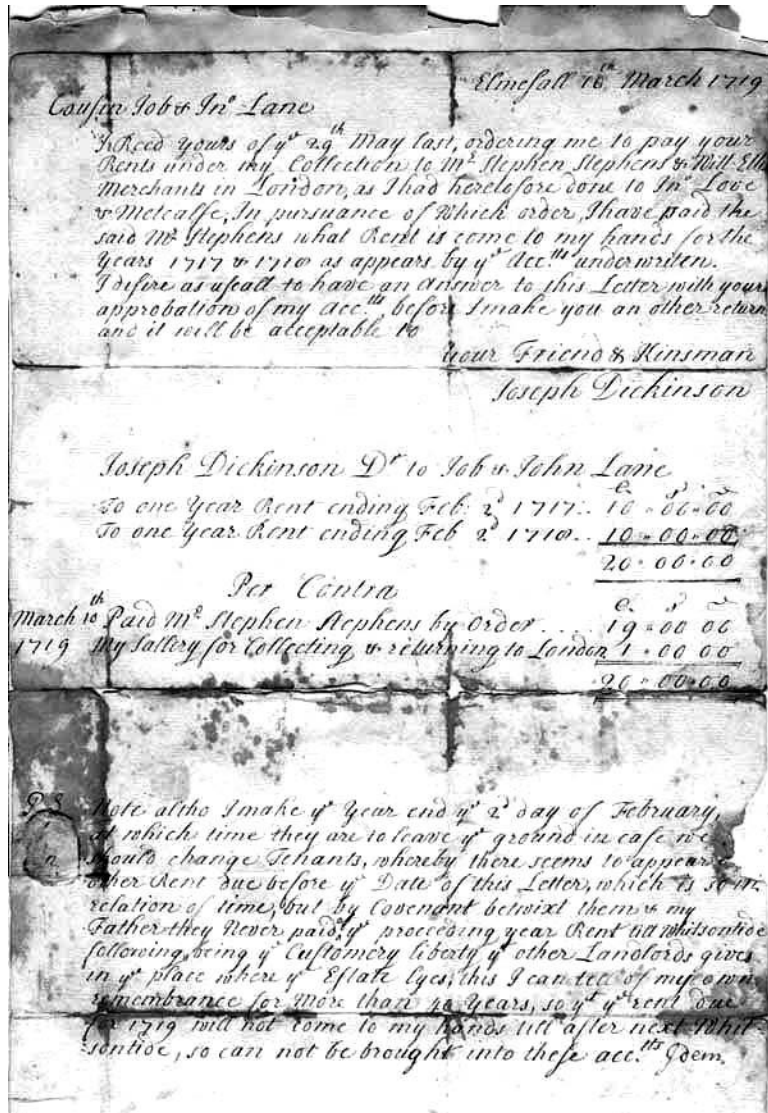 Elmesall 16th March 1719
Cousin Job & Jno Lane
I Reed yours of ye 29th May last, ordering me to pay your
Rents under my Collection to Mr Stephen Stephens & Will Ellis
Merchants in London, as I had heretofore done to Jno Love
& Metcalfe, In pursuance of Which order, I have paid the
said Mr Stephens what Rent is come to my hands for the
Years 1717 & 1718 as appears by ye Acc.tts underwriten.
I desire as useall to have an Answer to this Letter with your
approbation of my Acc.tts before I make you an other return
and it will be acceptable to
your Friend & Kinsman
Joseph Dickinson
Joseph Dickinson Dr to Job & John Lane
£ s d
To one Year Rent ending Feb: 2d 1717:. 10 = 00 = 00
To one Year Rent ending Feb 2d 1718.. 10 = 00 = 00
20 = 00 = 00
Per Contra
£ s d
March 10th Paid Mr Stephen Stephens by Order .... 19 = 00 00
1719 My Sallery for Collecting & returning to London 1 = 00 00
20 = 00 = 00
P.S. Note altho I make ye Year end ye 2d day of February,
at which time they are to leave ye ground in case we
should change Tenants, whereby there seems to appear
other Rent due before ye Date of this Letter, which is so in
relation of time, but by Covenant betwixt them & my
Father they Never paid ye proceeding year Rent till whitsontide
following, being ye Customery liberty ye other Landlords gives
in ye place where ye Estate Lyes, this I can tell of my own
remembrance for More than 40 Years, so yt ye rent due
for 1719 will not come to my hands till after next Whit-
sontide, so can not be brought into these acc.tts Idem.